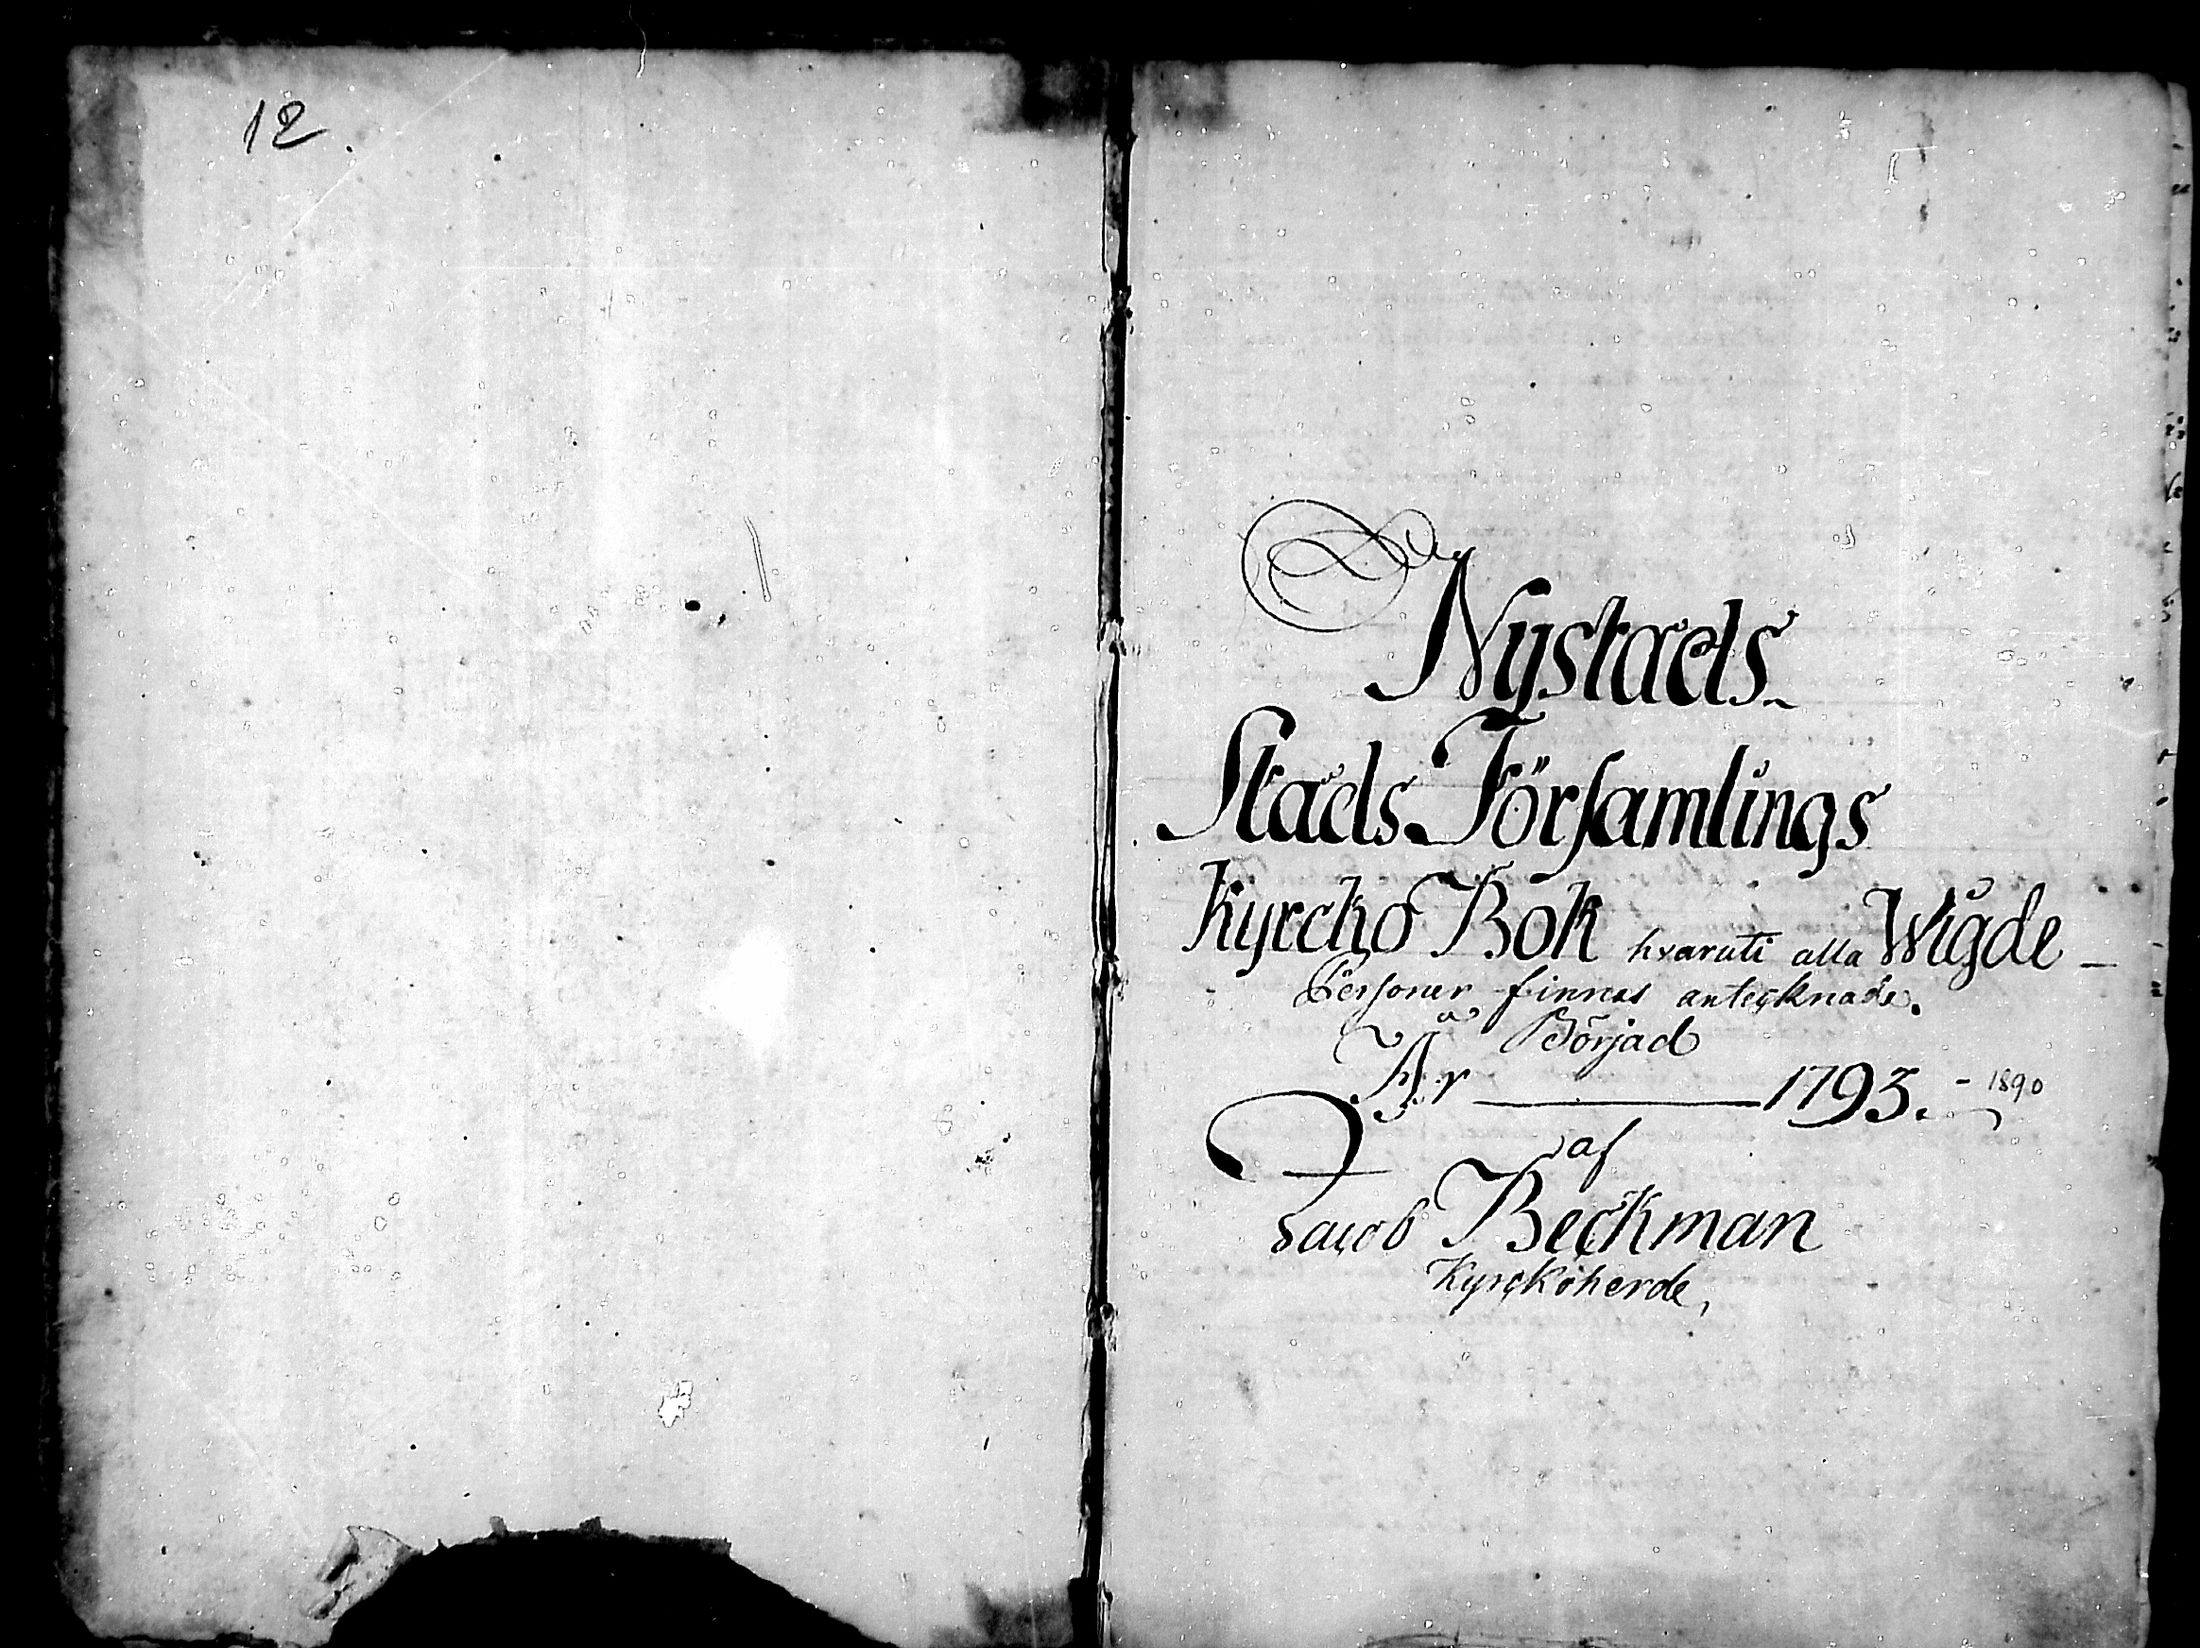 12.
Nystads
Stads Församlings
Kyrcko Bok hvaruti alla Wigde
Personer finnas antecknade.
Börjad
År 1793. - 1890
af
Jacob Beckman
Kyrckoherde,